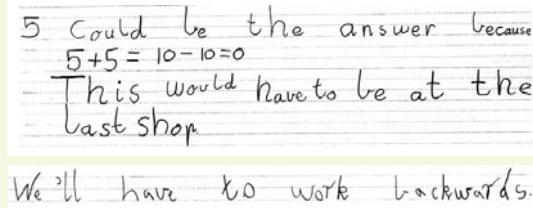 5 Could be the answer because
5+5 = 10-10=0
This would have to be at the
last shop
We'll have to work backwards.